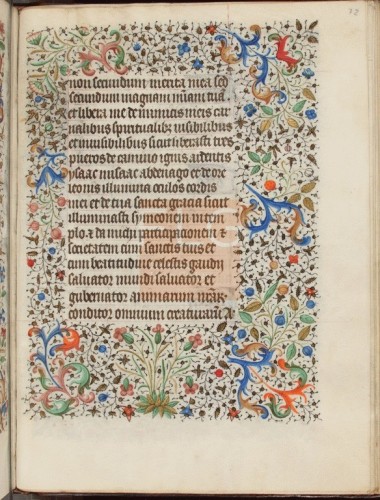 32
non secundum merita mea sed
secundum magnam miam tua
et libera me de inimicis meis car
nalibus spiritualibz visibilibus
et invisibilibus sicut liberasti tres
pueros de camino ignis ardentis
ysaac misaac abdenago et de ore
leonis illumina oculos cordis
mei et de tua sancta gracia sicut
illuminasti symeonem in tem
plo & da michi participationem &
societatem cum sanctis tuis et
cum beatitudine celestis gaudii
salvator mundi salvator et
gubernator animarum
conditor omnium creaturarum